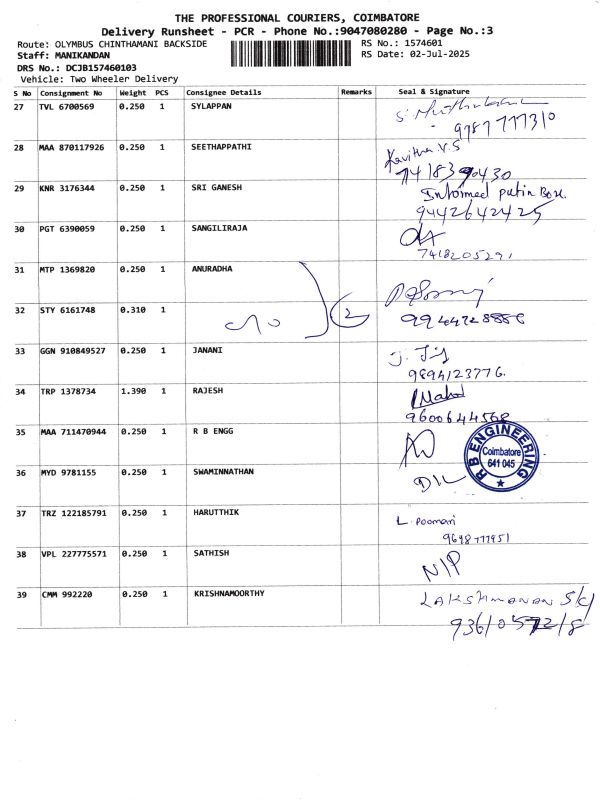 THE PROFESSIONAL COURIERS, COIMBATORE
Delivery Runsheet - PCR - Phone No.:9047080280 - Page No.:3
Route: OLYMBUS CHINTHAMANI BACKSIDE RS No.: 1574601
Staff: MANIKANDAN RS Date: 02-Jul-2025
DRS No.: DCJB157460103
Vehicle: Two Wheeler Delivery
S No Consignment No Weight PCS Consignee Details Remarks Seal & Signature
27 TVL 6700569 0.250 1 SYLAPPAN
9787777310
28 MAA 870117926 0.250 1 SEETHAPPATHI Kavitha V.S
7418390430
29 KNR 3176344 0.250 1 SRI GANESH Informed put in Box.
9442642425
30 PGT 6390059 0.250 1 SANGILIRAJA
7418205291
31 MTP 1369820 0.250 1 ANURADHA
32 STY 6161748 0.310 1 2
33 GGN 910849527 0.250 1 JANANI
9894123776.
34 TRP 1378734 1.390 1 RAJESH
9600644568
35 MAA 711470944 0.250 1 R B ENGG
R B ENGINEERING
Coimbatore
641 045
36 MYD 9781155 0.250 1 SWAMINNATHAN D/L
37 TRZ 122185791 0.250 1 HARUTTHIK L. Poomari
9698777951
38 VPL 227775571 0.250 1 SATHISH N/P
39 CMM 992220 0.250 1 KRISHNAMOORTHY LAKSHMANAN S/C